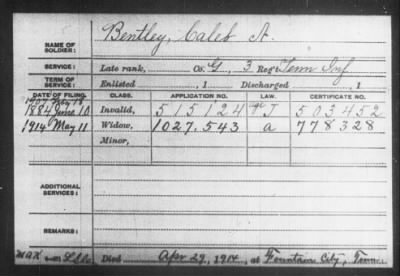 NAME OF SOLDIER: Bentley, Caleb A.
SERVICE: Late rank, Co. G, 3 Reg't Tenn Inf
TERM OF SERVICE: Enlisted , 1 Discharged , 1
DATE OF FILING. CLASS. APPLICATION NO. LAW. CERTIFICATE NO.
1884 June 10 Invalid, 515124 J 503452
1914 May 11 Widow, 1027.543 a 778328
Minor,
ADDITIONAL SERVICES:
REMARKS:
Died Apr 29, 1914, at Fountain City, Tenn